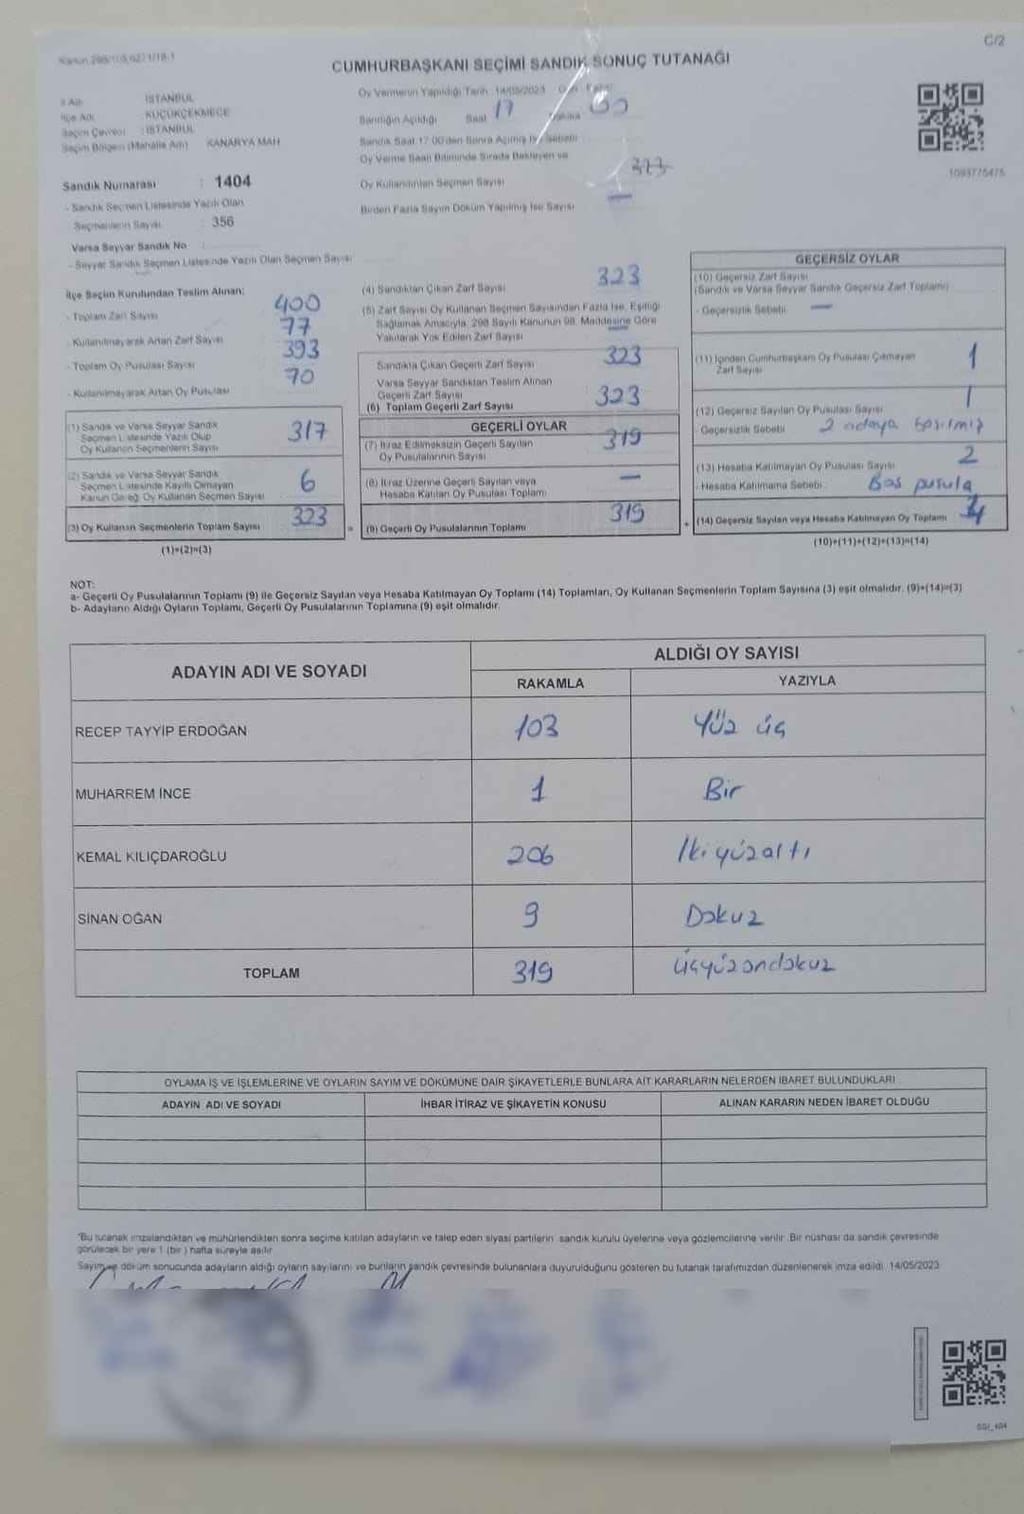 C/2
CUMHURBAŞKANI SEÇİMİ SANDIK SONUÇ TUTANAĞI
İSTANBUL
KÜÇÜKÇEKMECE
İSTANBUL
Seçim Bölgesi (Mahalle Adı) KANARYA MAH
Sandık Numarası : 1404
- Sandık Seçmen Listesinde Yazılı Olan
Seçmenlerin Sayısı : 356
Varsa Seyyar Sandık No :
- Seyyar Sandık Seçmen Listesinde Yazılı Olan Seçmen Sayısı
Oy Vermenin Yapıldığı Tarih : 14/05/2023
Sandığın Açıldığı Saat 17
Sandık Saat 17:00'den Sonra Açılmış İse Sebebi
Oy Verme Saati Bitiminde Sırada Bekleyen ve
Oy Kullandırılan Seçmen Sayısı
Birden Fazla Sayım Döküm Yapılmış İse Sayısı —
1093775475
İlçe Seçim Kurulundan Teslim Alınan:
- Toplam Zarf Sayısı 400
- Kullanılmayarak Artan Zarf Sayısı 77
- Toplam Oy Pusulası Sayısı 393
- Kullanılmayarak Artan Oy Pusulası 70
(1) Sandık ve Varsa Seyyar Sandık
Seçmen Listesinde Yazılı Olup
Oy Kullanan Seçmenlerin Sayısı 317
(2) Sandık ve Varsa Seyyar Sandık
Seçmen Listesinde Kayıtlı Olmayan
Kanun Gereği Oy Kullanan Seçmen Sayısı 6
(3) Oy Kullanan Seçmenlerin Toplam Sayısı 323
(1)+(2)=(3)
(4) Sandıktan Çıkan Zarf Sayısı 323
(5) Zarf Sayısı Oy Kullanan Seçmen Sayısından Fazla İse, Eşitliği
Sağlamak Amacıyla, 298 Sayılı Kanunun 98. Maddesine Göre
Yakılarak Yok Edilen Zarf Sayısı —
Sandıkta Çıkan Geçerli Zarf Sayısı 323
Varsa Seyyar Sandıktan Teslim Alınan
Geçerli Zarf Sayısı
(6) Toplam Geçerli Zarf Sayısı 323
GEÇERLİ OYLAR
(7) İtiraz Edilmeksizin Geçerli Sayılan
Oy Pusulalarının Sayısı 319
(8) İtiraz Üzerine Geçerli Sayılan veya
Hesaba Katılan Oy Pusulası Toplamı —
(9) Geçerli Oy Pusulalarının Toplamı 319
GEÇERSİZ OYLAR
(10) Geçersiz Zarf Sayısı
(Sandık ve Varsa Seyyar Sandık Geçersiz Zarf Toplamı)
- Geçersizlik Sebebi : —
(11) İçinden Cumhurbaşkanı Oy Pusulası Çıkmayan
Zarf Sayısı 1
(12) Geçersiz Sayılan Oy Pusulası Sayısı 1
- Geçersizlik Sebebi : 2 adaya basılmış
(13) Hesaba Katılmayan Oy Pusulası Sayısı 2
- Hesaba Katılmama Sebebi : Boş pusula
(14) Geçersiz Sayılan veya Hesaba Katılmayan Oy Toplamı 4
(10)+(11)+(12)+(13)=(14)
NOT:
a- Geçerli Oy Pusulalarının Toplamı (9) ile Geçersiz Sayılan veya Hesaba Katılmayan Oy Toplamı (14) Toplamları, Oy Kullanan Seçmenlerin Toplam Sayısına (3) eşit olmalıdır. (9)+(14)=(3)
b- Adayların Aldığı Oyların Toplamı, Geçerli Oy Pusulalarının Toplamına (9) eşit olmalıdır.
ADAYIN ADI VE SOYADI ALDIĞI OY SAYISI
RAKAMLA YAZIYLA
RECEP TAYYİP ERDOĞAN 103 Yüz üç
MUHARREM İNCE 1 Bir
KEMAL KILIÇDAROĞLU 206 İkiyüzaltı
SİNAN OĞAN 9 Dokuz
TOPLAM 319 üçyüzondokuz
OYLAMA İŞ VE İŞLEMLERİNE VE OYLARIN SAYIM VE DÖKÜMÜNE DAİR ŞİKAYETLERLE BUNLARA AİT KARARLARIN NELERDEN İBARET BULUNDUKLARI
ADAYIN ADI VE SOYADI İHBAR İTİRAZ VE ŞİKAYETİN KONUSU ALINAN KARARIN NEDEN İBARET OLDUĞU
*Bu tutanak imzalandıktan ve mühürlendikten sonra seçime katılan adayların ve talep eden siyasi partilerin sandık kurulu üyelerine veya gözlemcilerine verilir. Bir nüshası da sandık çevresinde
görülecek bir yere 1 (bir) hafta süreyle asılır.
Sayım ve döküm sonucunda adayların aldığı oyların sayılarını ve bunların sandık çevresinde bulunanlara duyurulduğunu gösteren bu tutanak tarafımızdan düzenlenerek imza edildi. 14/05/2023